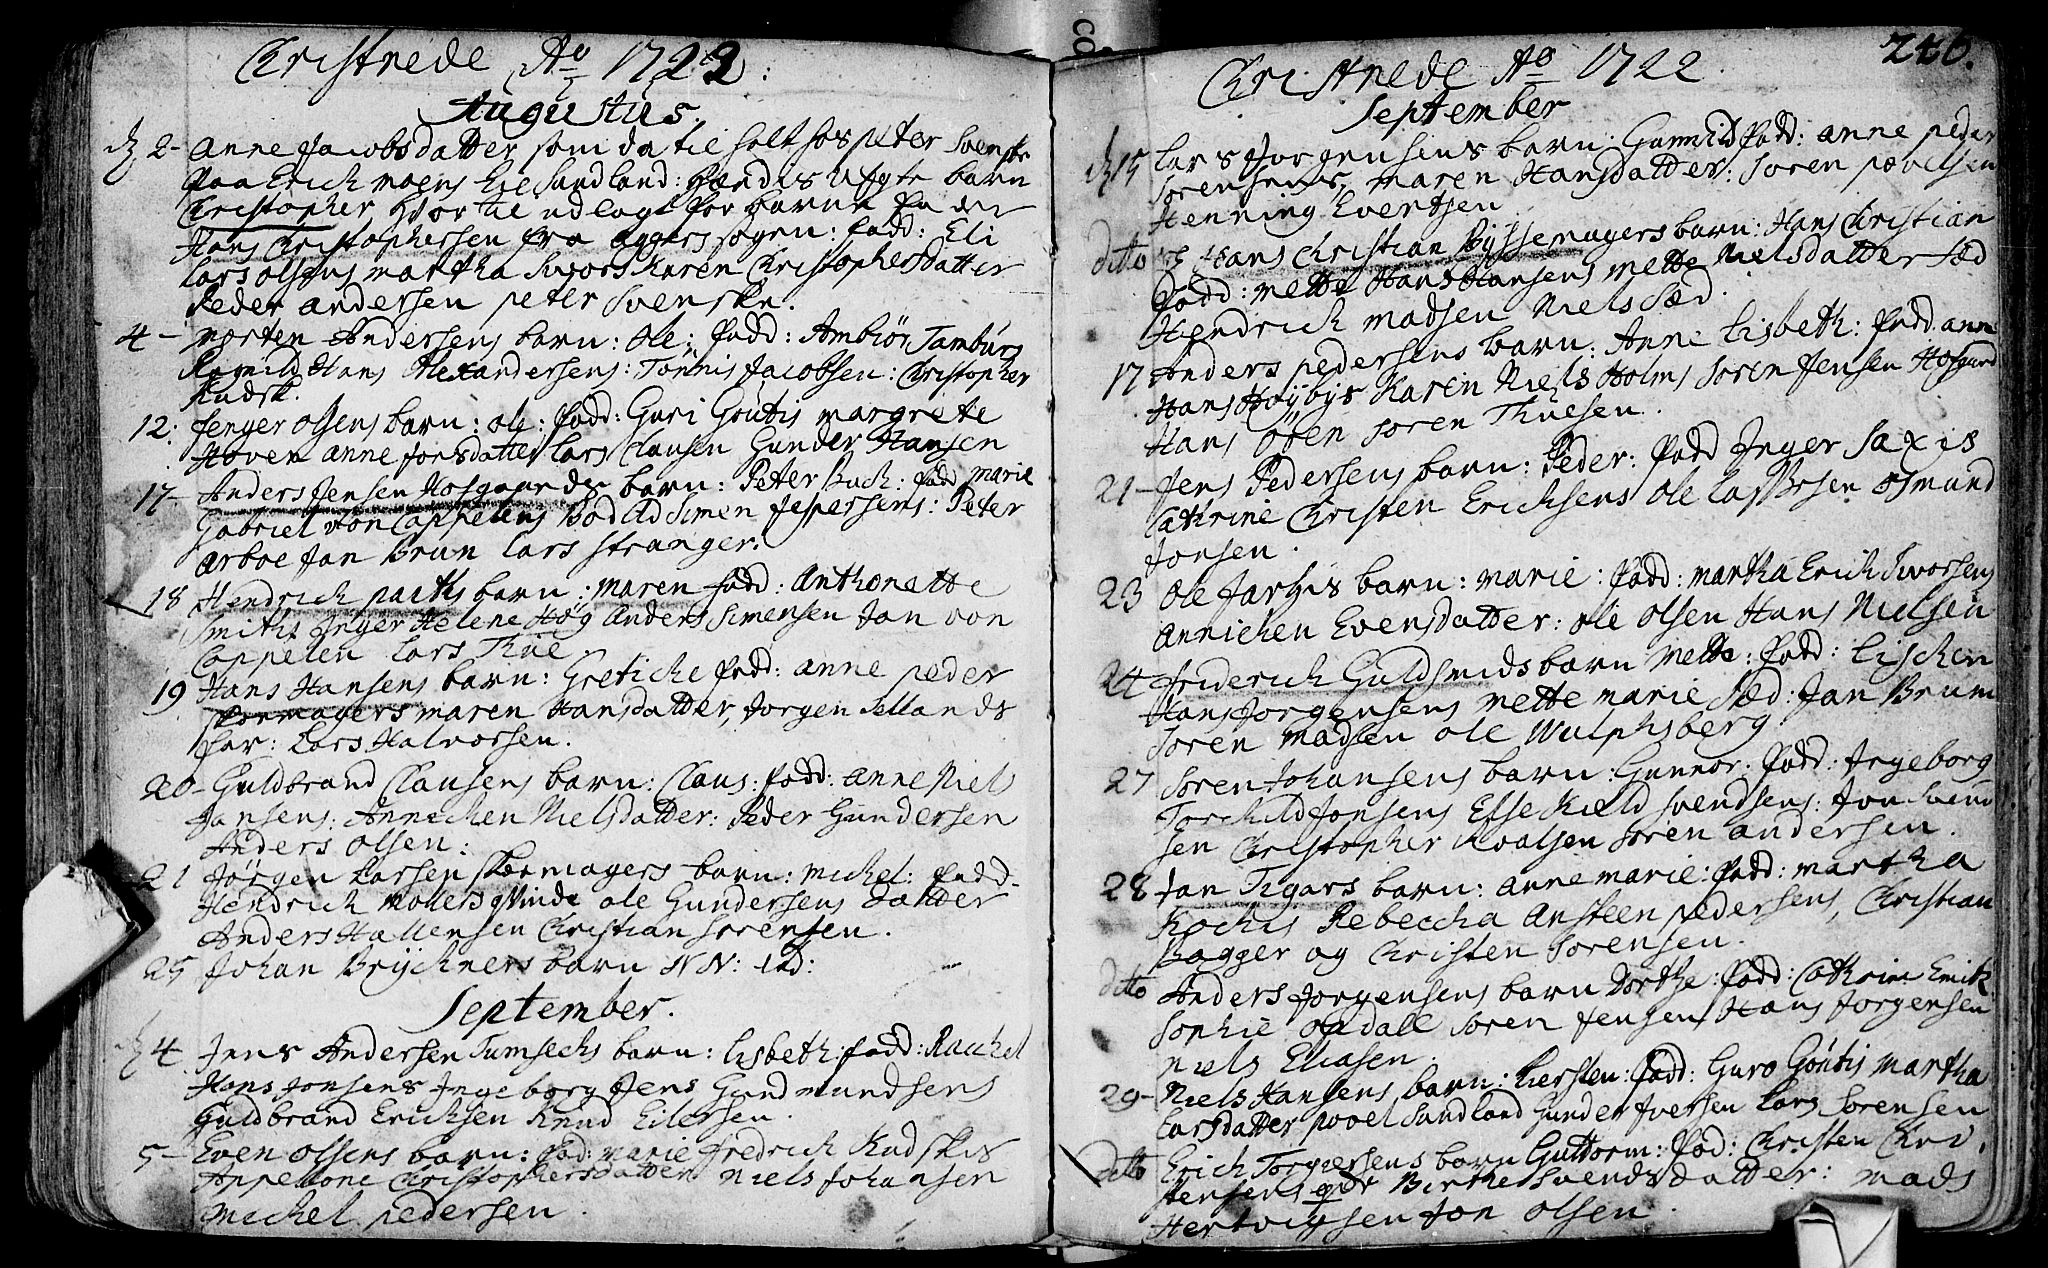 Christnede Ao 1722:
Augustus.
d 2- Anne Jacobsdatter som da til holt hos peter Svenske
paa Erick moens Eie Sandland: hændis Uegte barn
Christopher hvor til udlagt for barne fader
Hans Christophersen fra aggers sogen: fadd: Eli
Lars olsens martha Ivors Karen Christophersdatter
Peder andersen peter Svenske.
4- morten Andersens barn: Ole: fadd: Ambiør Tamburs
Ragnild Hans Alexandersens: Tönnis Jacobsen: Christopher
Kudsk.
12: Jenger olsens barn: ole: fadd: Guri Goutis margrete
Hoven anne jonsdatter Lars Clausen Gunder Hansen
17- Anders Jensen Hofgaards barn: Peter Buck: fadd marie
Gabriel von Cappelens Bodild Simen Jespersens: Peter
Arboe Jan Brun Lars Stranger.
18 Hendrick parths barn: maren fadd: Anthonette
Smiths Inger Helene Høg Anders Simensen Jan von
Cappelen Lars Thue.
19 Hans Hansens barn: Greticke fadd: anne peder
skoemagers maren Hansdatter, Jorgen Sellands
far: Lars Halvorsen.
20- Guldbrand Clausens barn: Claus: fadd: anne Niels
Jansens: Annichen Nielsdatter: Peder Gundersen
Anders Olsen:
21 Jørgen Larsen skoemagers barn: Michel: fadd-
Hendrick molers qvinde ole Gundersens datter
Anders Hallensen Christian sorensen.
25 Johan Bryckners barn NN:
September.
d 4 Jens Andersen Tumsecks barn: Lisbeth: fadd: Rachel
Hans Jonsens Ingeborg Jens Gundmundsens
Guldbrand Ericksen Knud Eilersen.
5- Even olsens barn: fad: marie Fredrick Kudskis
Anpellone Christophersdatter Niels Johansen
Michel pedersen.
246.
Christnede Ao 1722
September
d 15 Lars Jorgensens barn: Gunnild fadd: anne peder
sorensens, maren Hansdatter: Soren povelsen
Henning Evertsen
dito Hans Christian Bysssemagers barn: Hans Christian
fadd: mette Hans Hansens mette Nielsdatter Sæd
Hendrick madsen Niels Sæd.
17 Anders pedersens barn: Anne Lisbeth: fadd. anne
Hans Høybys Karen Niels Holms Soren Jensen Hofgard
Hans ören soren Thuesen.
21- Jens Pedersens barn: Peder: fadd Inger Saxis
Cathrine Christen Ericksens ole Lassesen osmund
Jonsen.
23 Ole Jarhis barn: marie: fadd: martha Erick Ivorsens
Annichen Evensdatter: ole olsen Hans Nielsen
24 friderich Guldsmids barn Mette: fadd: Lischen
Hans Jorgensens mette marie Sæd: Jan Brun
soren madsen ole Wulphsberg
27 Soren Johansens barn: Gunnor. fadd: Ingeborg
Torchild Jonsens Esse Kield svendsens: Jon Svend
sen Christopher Roalsen soren andersen.
28 Jan Tigars barn: anne marie: fadd: martha
Kochis Rebeccha Ansteen pedersens, Christian
Bagger og Christen sorensen.
dito Anders Jorgensens barn Dorthe: fadd: Cathrine Emik
sophie opdall soren Jensen Hans Jorgensen
Niels Eliasen.
29- Niels Hansens barn: Kiersten: fadd: Guro Goutis martha
Larsdatter povel Sandland Gunder Iversen Lars Sorensen
dito Erich Torgiersens barn Guttorm: fad: Christen Chri,
stensens qde Birthe Svendsdatter: mads
Hertvigsen Jon olsen.